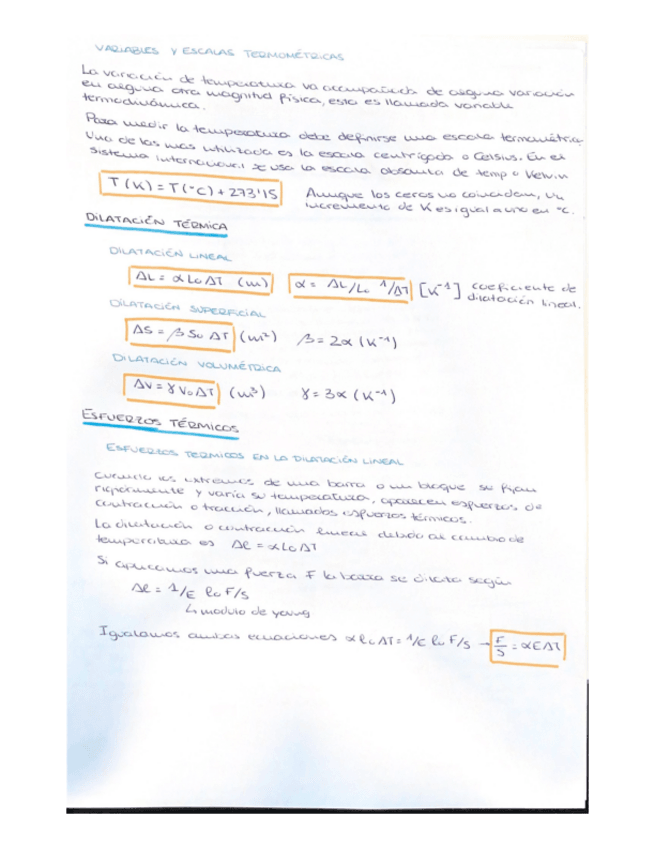 VARIABLES Y ESCALAS TERMOMÉTRICAS
La variación de temperatura va acompañada de alguna variación
en alguna otra magnitud física, esta es llamada variable
termodinámica.
Para medir la temperatura debe definirse una escala termométrica.
Una de las mas utilizada es la escala centrígada o Celsius. En el
sistema internacional se usa la escala absoluta de temp o Kelvin
T(K) = T(°C) + 273'15
Aunque los ceros no coincidan, un
incremento de K es igual a uno en °C.
DILATACIÓN TÉRMICA
DILATACIÓN LINEAL
ΔL = α L₀ ΔT (m)
α = ΔL/L₀ 1/ΔT [K⁻¹] coeficiente de
dilatación lineal.
DILATACIÓN SUPERFICIAL
ΔS = β S₀ ΔT (m²) β = 2α (K⁻¹)
DILATACIÓN VOLUMÉTRICA
ΔV = γ V₀ ΔT (m³) γ = 3α (K⁻¹)
ESFUERZOS TÉRMICOS
ESFUERZOS TERMICOS EN LA DILATACIÓN LINEAL
Cuando los extremos de una barra o un bloque se fijan
rigidamente y varía su temperatura, aparecen esfuerzos de
contracción o tracción, llamados esfuerzos térmicos.
La dilatación o contracción lineal debido al cambio de
temperatura es Δl = α L₀ ΔT
Si aplicamos una fuerza F la barra se dilata según
Δl = 1/E l₀ F/S
↳ modulo de young
Igualamos ambas ecuaciones α l₀ ΔT = 1/E l₀ F/S → F/S = α E ΔT